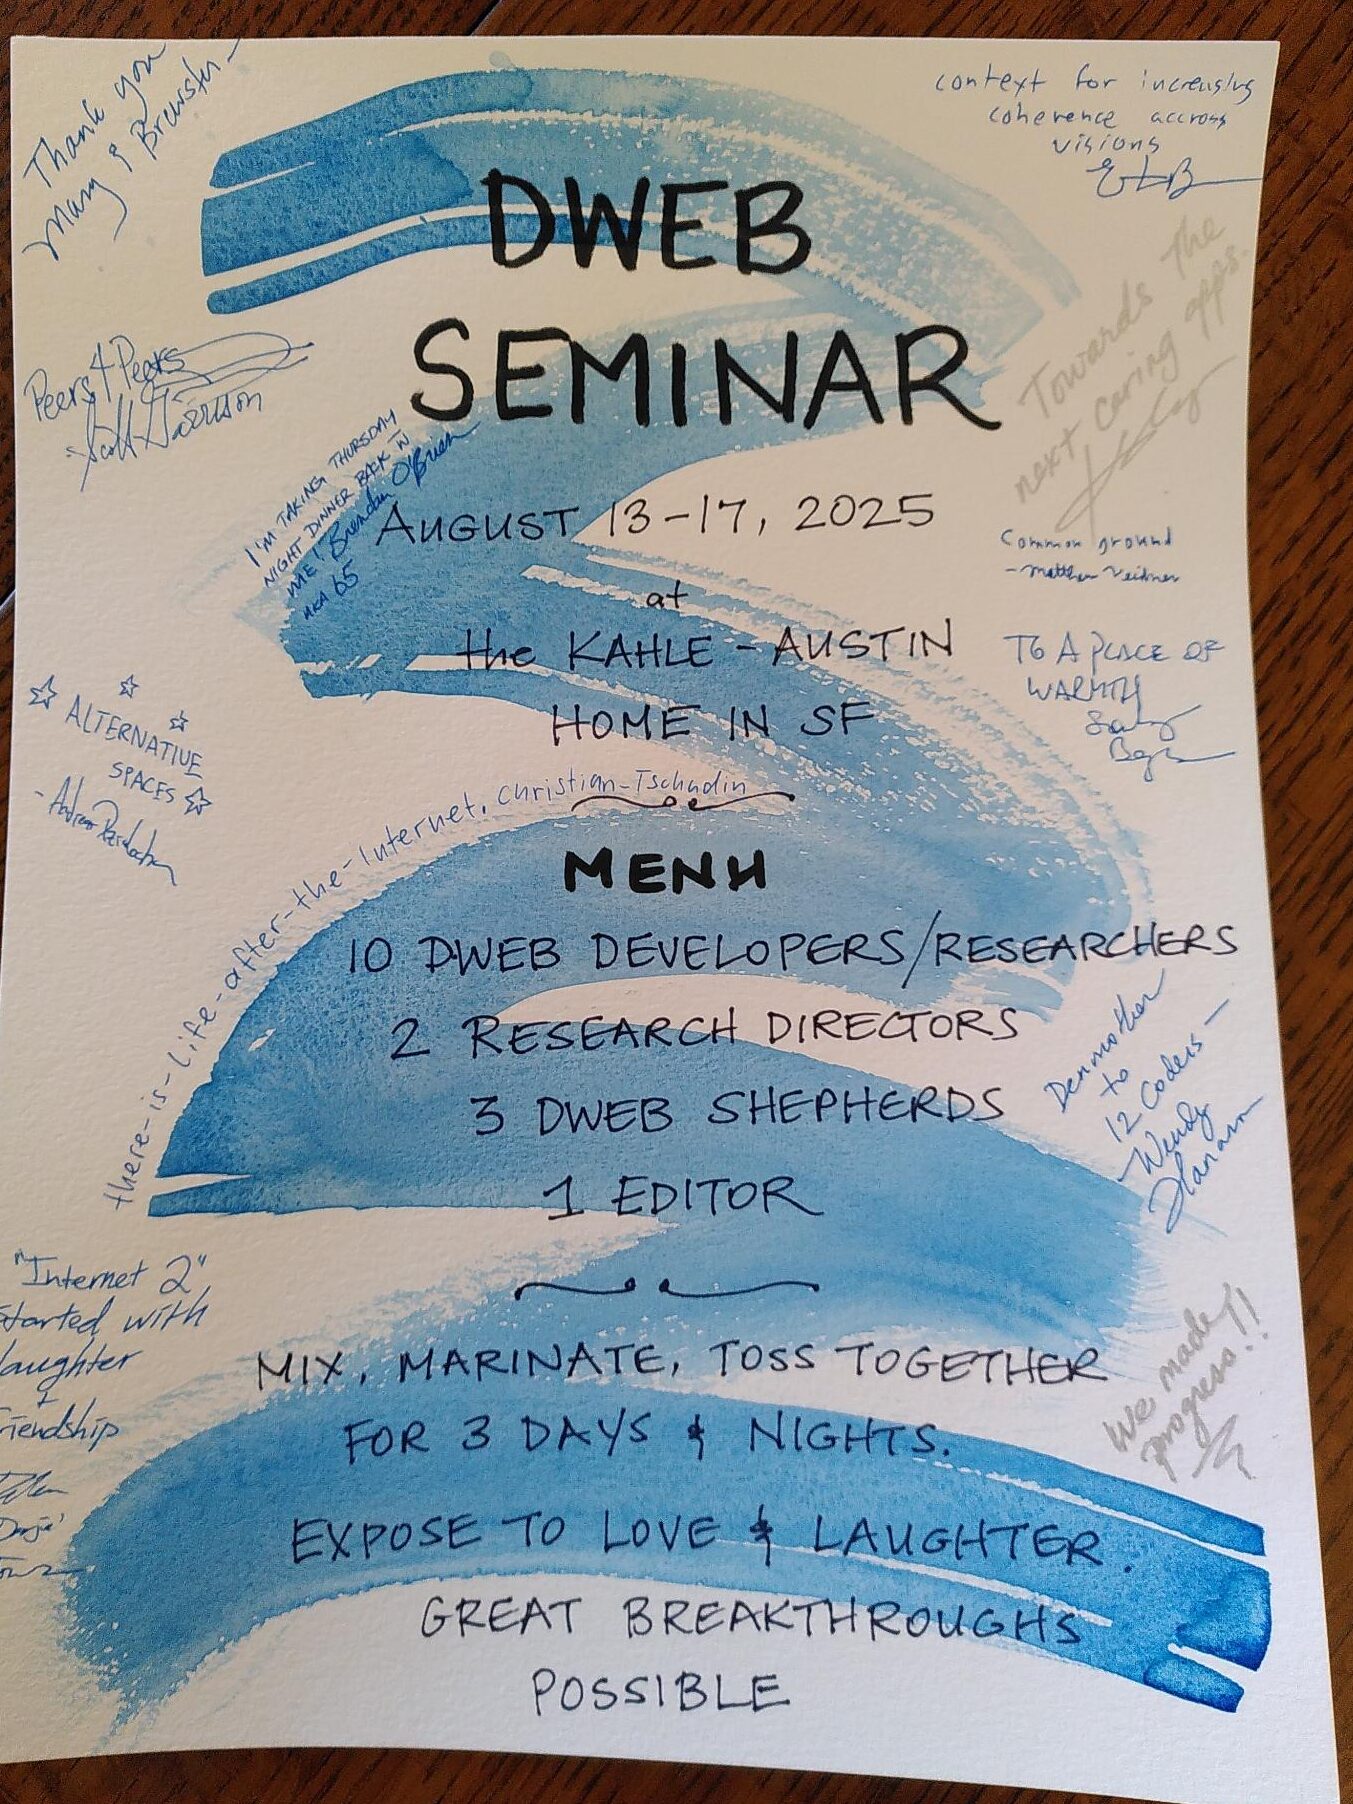 Thank you
Mary & Brewster –
context for increasing
coherence accross
visions
DWEB
SEMINAR
Towards the
next caring apps.
Peers 4 Peers
Scott
I'M TAKING THURSDAY
NIGHT DINNER BACK W
ME! Brendan O'Brien
AKA 65
AUGUST 13-17, 2025
Common ground
- Matthew Weidner
at
the KAHLE - AUSTIN
HOME IN SF
TO A PLACE OF
WARMTH
ALTERNATIVE
SPACES
there-is-life-after-the-Internet. Christian-Tschudin
MENU
10 DWEB DEVELOPERS/RESEARCHERS
2 RESEARCH DIRECTORS
3 DWEB SHEPHERDS
1 EDITOR
Denmother
to
12 Coders –
Wendy
Hanamura
"Internet 2"
started with
laughter
+
friendship
MIX, MARINATE, TOSS TOGETHER
FOR 3 DAYS & NIGHTS.
We made
progress!!
EXPOSE TO LOVE & LAUGHTER.
GREAT BREAKTHROUGHS
POSSIBLE